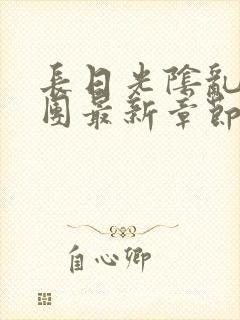 長日光陰亂
團最新章節
自心卿